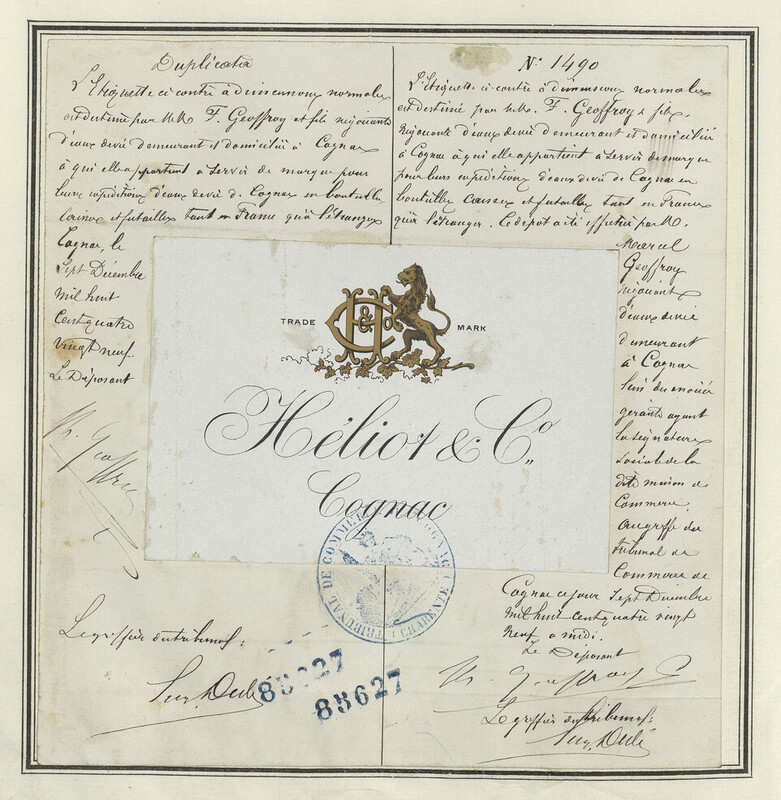 Duplicata
L'Etiquette ci-contre à dimensions normales
est destinée par MM F. Geoffroy et fils négociants
d'eaux de vie demeurant et domiciliés à Cognac
à qui elle appartient à servir de marque pour
leurs expéditions d'eaux de vie de Cognac en bouteilles
caisses et futailles tant en France qu'à l'étranger
Cognac, le
Sept Décembre
Mil huit
Cent quatre
Vingt neuf
Le Déposant
Le greffier du tribunal:
N° 1490
L'Etiquette ci-contre à dimensions normales
est destinée par MM. F. Geoffroy & fils.
Négociants d'eaux de vie demeurant et domiciliés
à Cognac à qui elle appartient à servir de marque
pour leurs expéditions d'eaux de vie de Cognac en
bouteilles caisses et futailles tant en France
qu'à l'étranger. Ce dépôt a été effectué par M.
Marcel
Geoffroy
négociant
d'eaux de vie
demeurant
à Cognac
l'un des
gérants ayant
la signature
sociale de la
dite maison de
Commerce
au greffe du
tribunal de
Commerce de
Cognac ce jour Sept Décembre
Mil huit cent quatre vingt
Neuf à midi.
Le Déposant
Le greffier du tribunal:
TRADE MARK
H & Co
Héliot & Co
Cognac
TRIBUNAL DE COMMERCE COGNAC (CHARENTE)
85627
85627